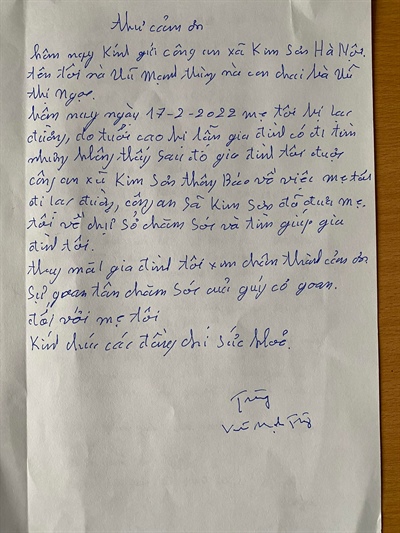 thư cảm ơn
hôm nay Kính gửi công an xã Kim Sơn Hà Nội.
tên tôi là Vũ Mạnh Hùng là con chai bà Vũ
thị Ngọc.
hôm nay ngày 17-2-2022 mẹ tôi bị lạc
đường, do tuổi cao bị lẫn gia đình có đi tìm
nhưng không thấy sau đó gia đình tôi được
công an xã Kim Sơn thông Báo về việc mẹ tôi
đi lạc đường, công an Sã Kim Sơn đã đưa mẹ
tôi về chụ Sở chăm Sóc và tìm giúp gia
đình tôi.
thay mặt gia đình tôi xin chân thành cảm ơn
Sự goan tân chăm Sóc của quý cơ goan.
đối với mẹ tôi
Kính chúc các đồng chí Sức khoẻ.
Vũ Mạnh